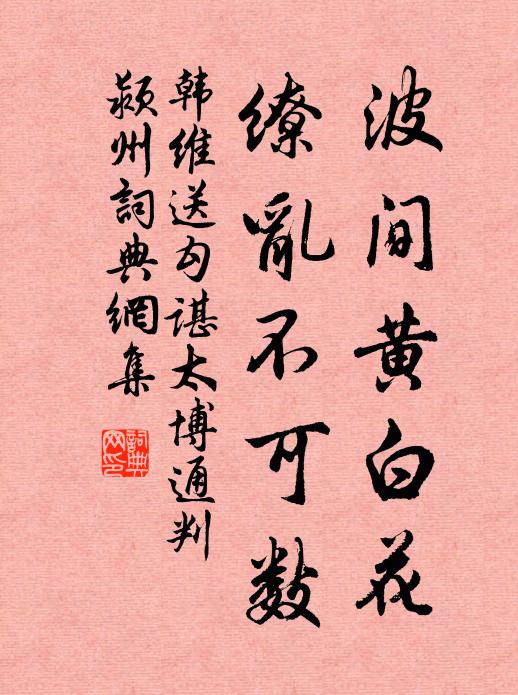 波间黄白花
缭乱不可数
韩维送勾谌太博通判
颍州詞典網集
詞典
网印